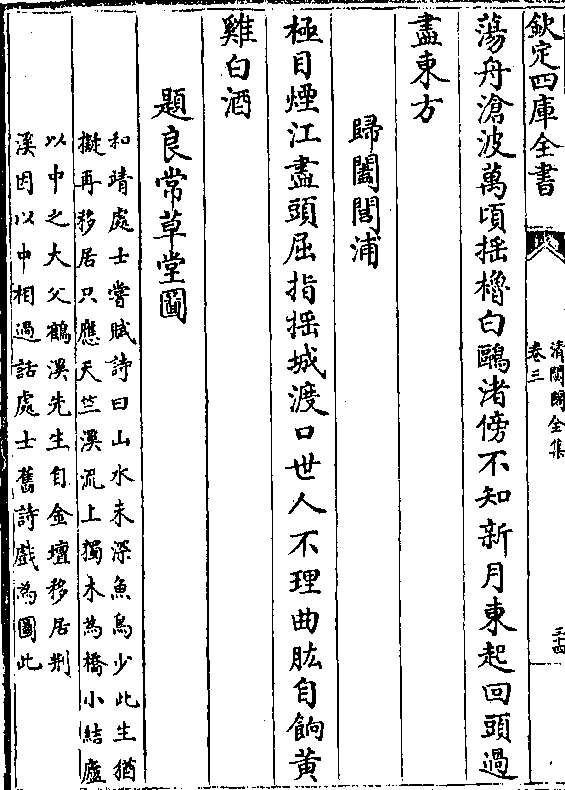 欽定四庫全書
清閟閣全集
卷三
三十四
蕩舟滄波萬頃揺櫓白鷗渚傍不知新月東起回頭過
盡東方
歸闔閭浦
極目煙江盡頭屈指揺城渡口世人不理曲肱自餉黄
雞白酒
題良常草堂圖
和靖處士嘗賦詩曰山水未深魚鳥少此生猶
擬再移居只應天竺溪流上獨木為橋小結廬
以中之大父鶴溪先生自金壇移居荆
溪因以中相過話處士舊詩戲為圖此